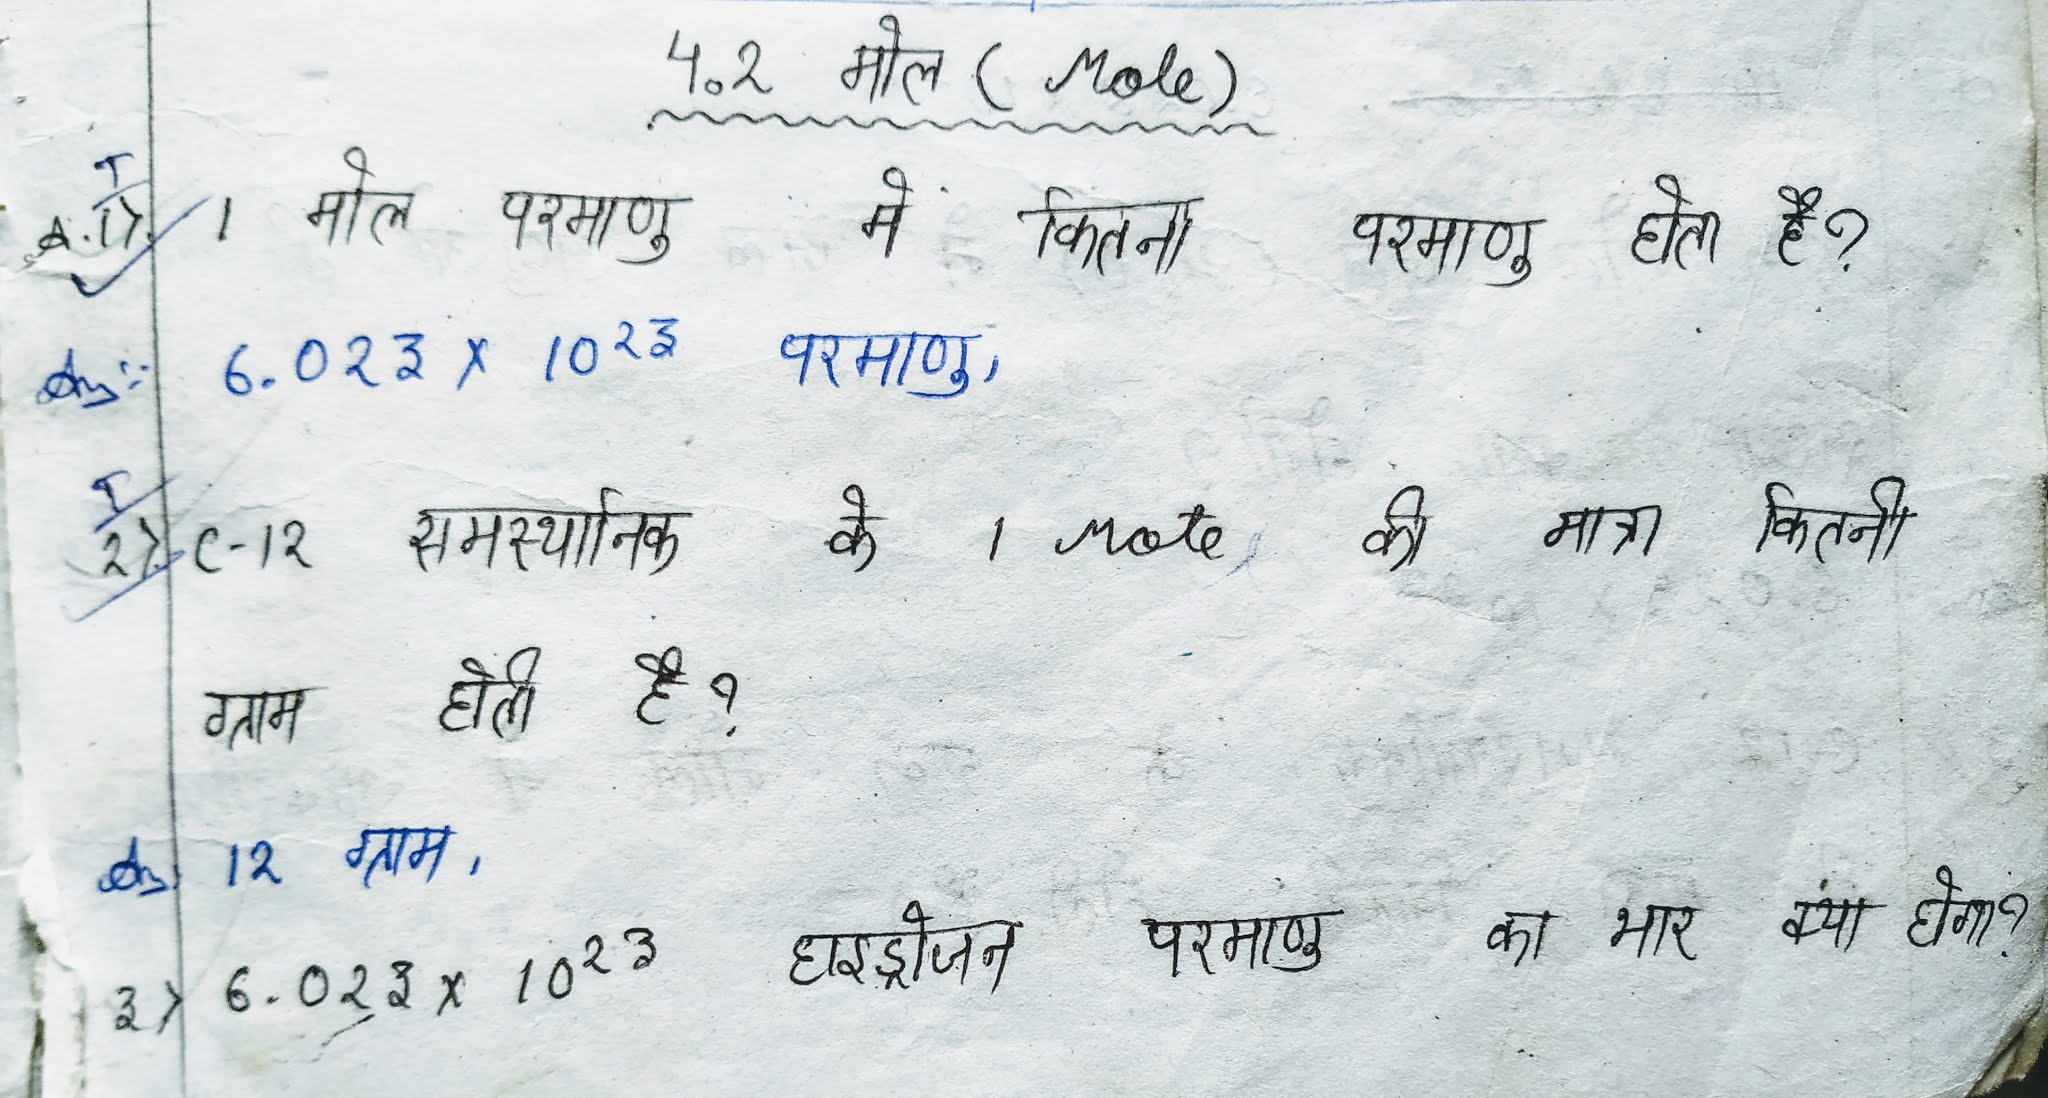 4.2 मोल ( Mole)
T
Q.1). 1 मोल परमाणु में कितना परमाणु होता है?
Ans:- 6.023 x 10²³ परमाणु,
T
2). C-12 समस्थानिक के 1 Mole की मात्रा कितनी
ग्राम होती है?
Ans. 12 ग्राम,
3) 6.023 x 10²³ हाइड्रोजन परमाणु का भार क्या होगा?